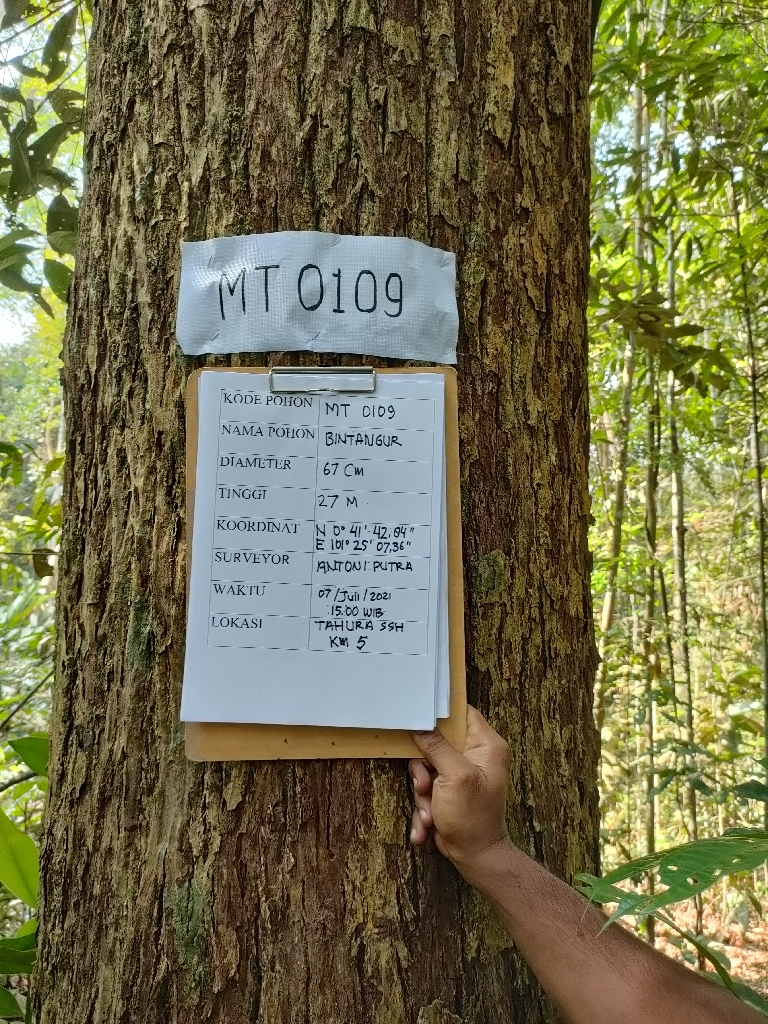 MT 0109
KODE POHON MT 0109
NAMA POHON BINTANGUR
DIAMETER 67 Cm
TINGGI 27 M
KOORDINAT N 0° 41' 42.04"
E 101° 25' 07.36"
SURVEYOR ANTONI PUTRA
WAKTU 07/Juli/2021
15.00 WIB
LOKASI TAHURA SSH
KM 5